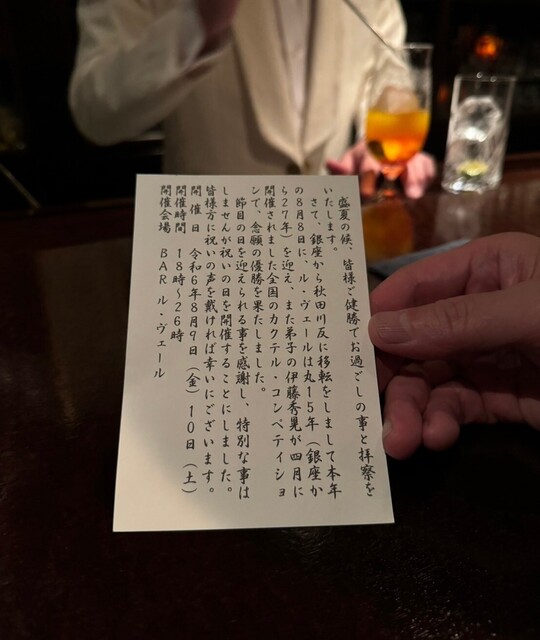 盛夏の候、皆様ご健勝でお過ごしの事と拝察を
いたします。
さて、銀座から秋田川反に移転をしまして本年
の8月8日に、ル・ヴェールは丸15年（銀座か
ら27年）を迎え、また弟子の伊藤秀晃が四月に
開催されました全国のカクテル・コンペティショ
ンで、念願の優勝を果たしました。
節目の日を迎えられる事を感謝し、特別な事は
しませんが祝いの日を開催することにしました。
皆様方に祝いの声を戴ければ幸いにございます。
開催日 令和6年8月9日（金）10日（土）
開催時間 18時～26時
開催会場 BAR ル・ヴェール